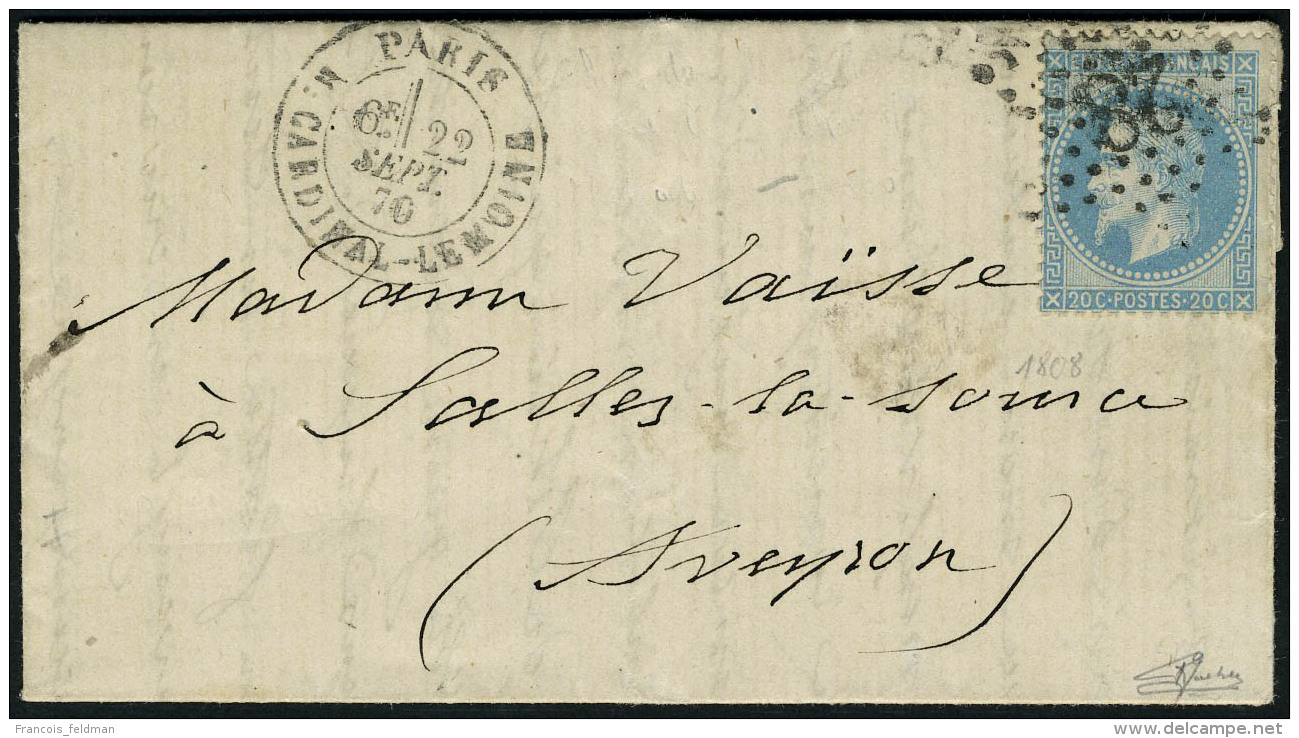 PARIS
R. CARDINAL-LEMOINE
6E 22
SEPT.
70
FRANÇAIS
28
20 C · POSTES · 20 C
Madame Vaïsse
1808
à Salles-la-source
(Aveyron)
Francois_feldman
www.delcampe.net